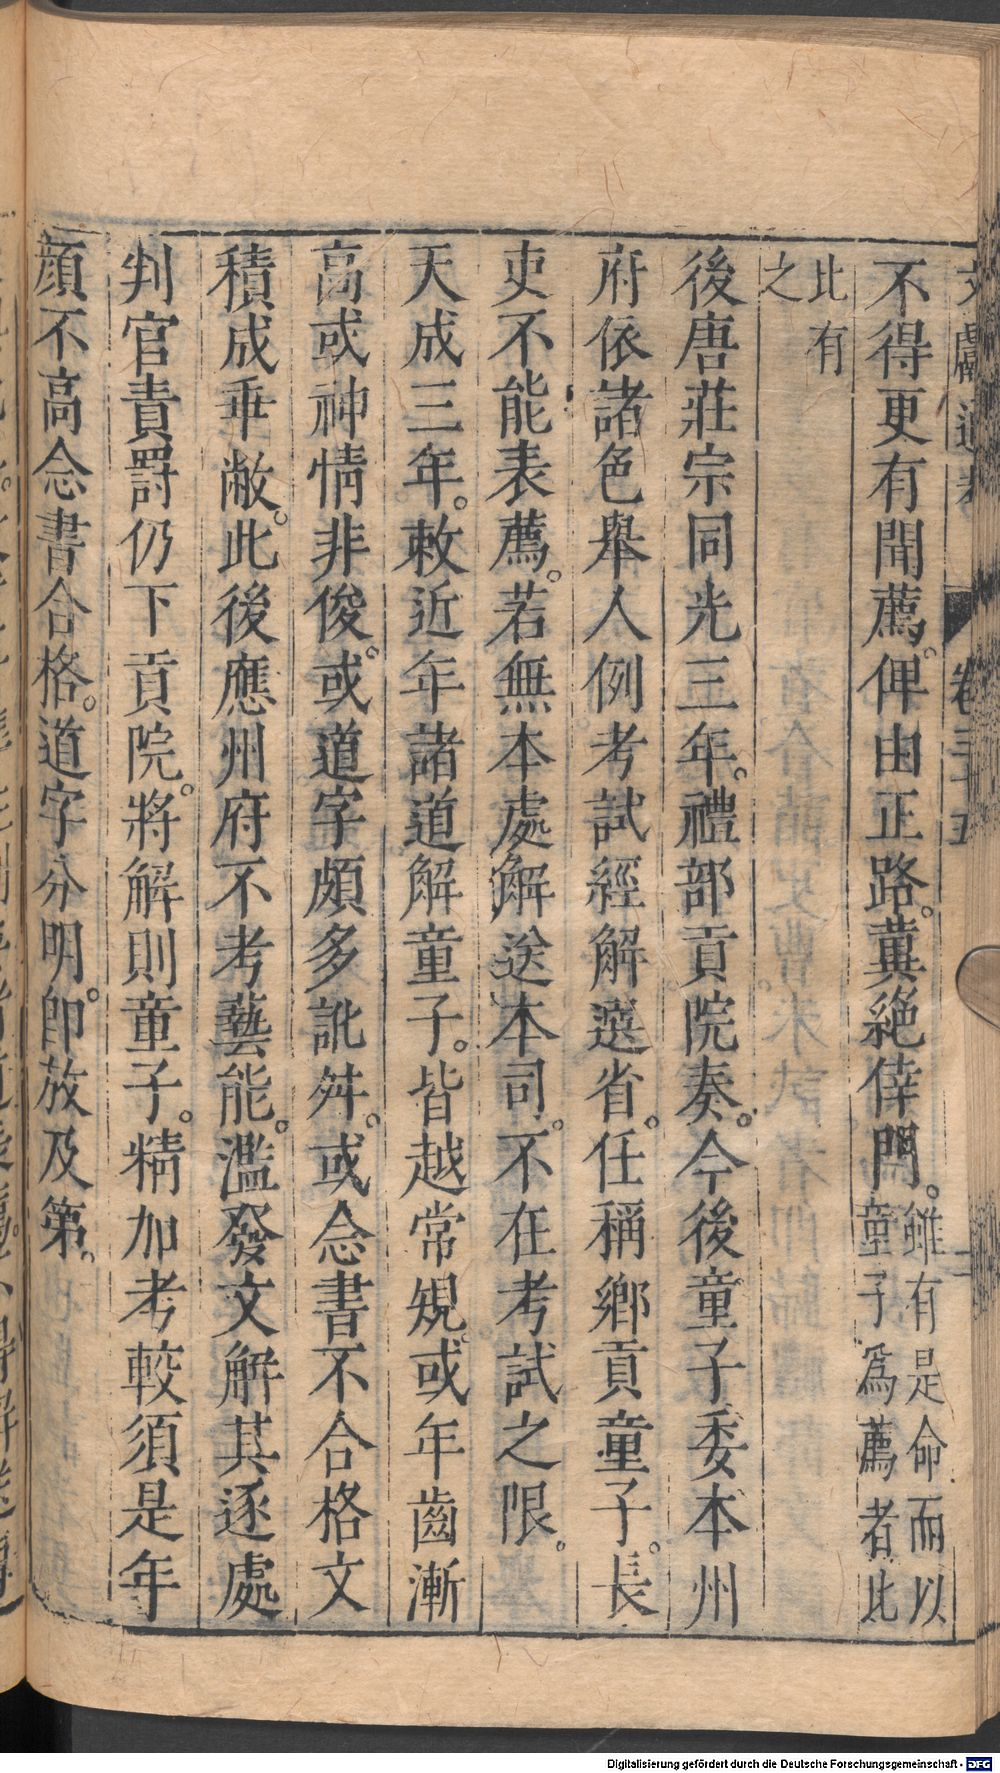 文獻通考 卷三十五
不得更有聞薦。俾由正路。冀絶倖門。雖有是命而以
童子為薦者比
比有
之
後唐莊宗同光三年。禮部貢院奏。今後童子委本州
府依諸色舉人例考試經解送省。任稱鄉貢童子。長
吏不能表薦。若無本處解送本司。不在考試之限。
天成三年。敕近年諸道解童子。皆越常規。或年齒漸
高或神情非俊。或道字頗多訛舛。或念書不合格文
積成乖敝。此後應州府不考藝能。濫發文解其逐處
判官責罸仍下貢院。將解則童子。精加考較須是年
顔不高念書合格。道字分明。即放及第。
Digitalisierung gefördert durch die Deutsche Forschungsgemeinschaft - DFG